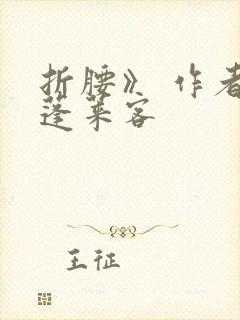 折腰》 作者
蓬莱客
王征